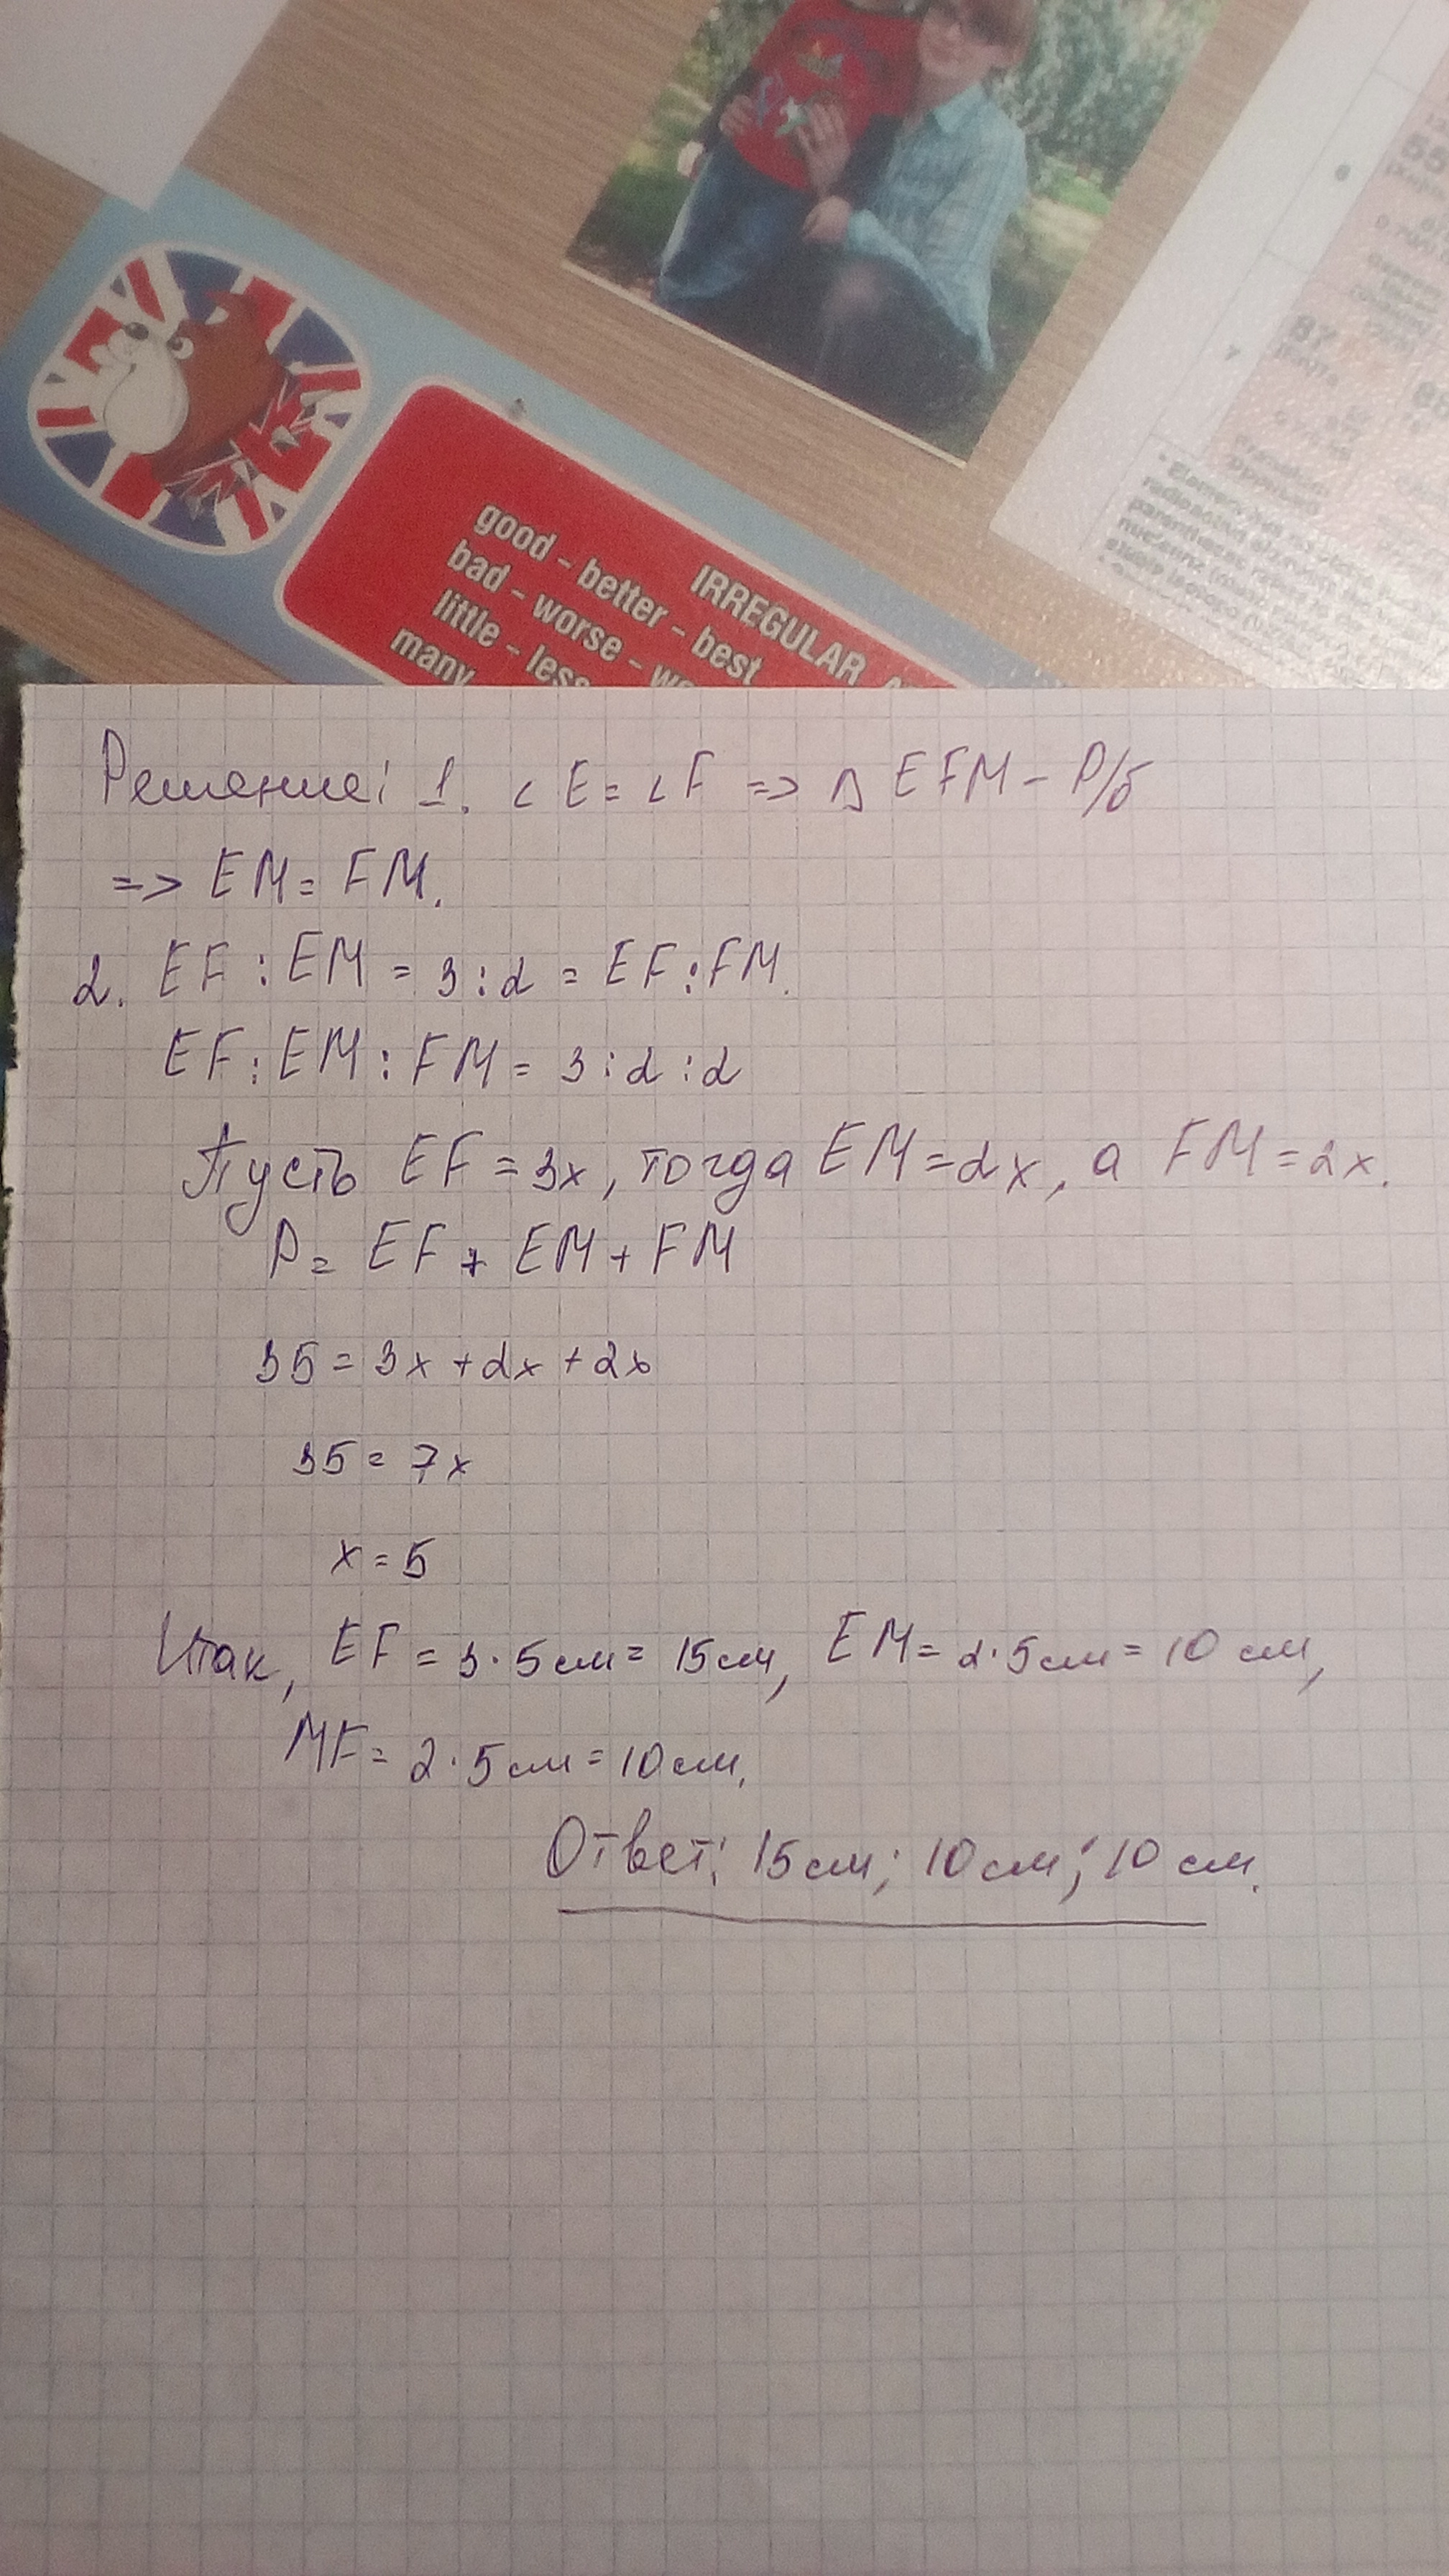 IRREGULAR
good - better - best
bad - worse -
little - less
many
Решение: 1. ∠E = ∠F => △ EFM - Р/б
=> EM = FM.
2. EF : EM = 3 : 2 = EF : FM.
EF : EM : FM = 3 : 2 : 2
Пусть EF = 3x, тогда EM = 2x, а FM = 2x.
P = EF + EM + FM
35 = 3x + 2x + 2x
35 = 7x
x = 5
Итак, EF = 3 · 5 см = 15 см, EM = 2 · 5 см = 10 см,
MF = 2 · 5 см = 10 см.
Ответ: 15 см; 10 см; 10 см.